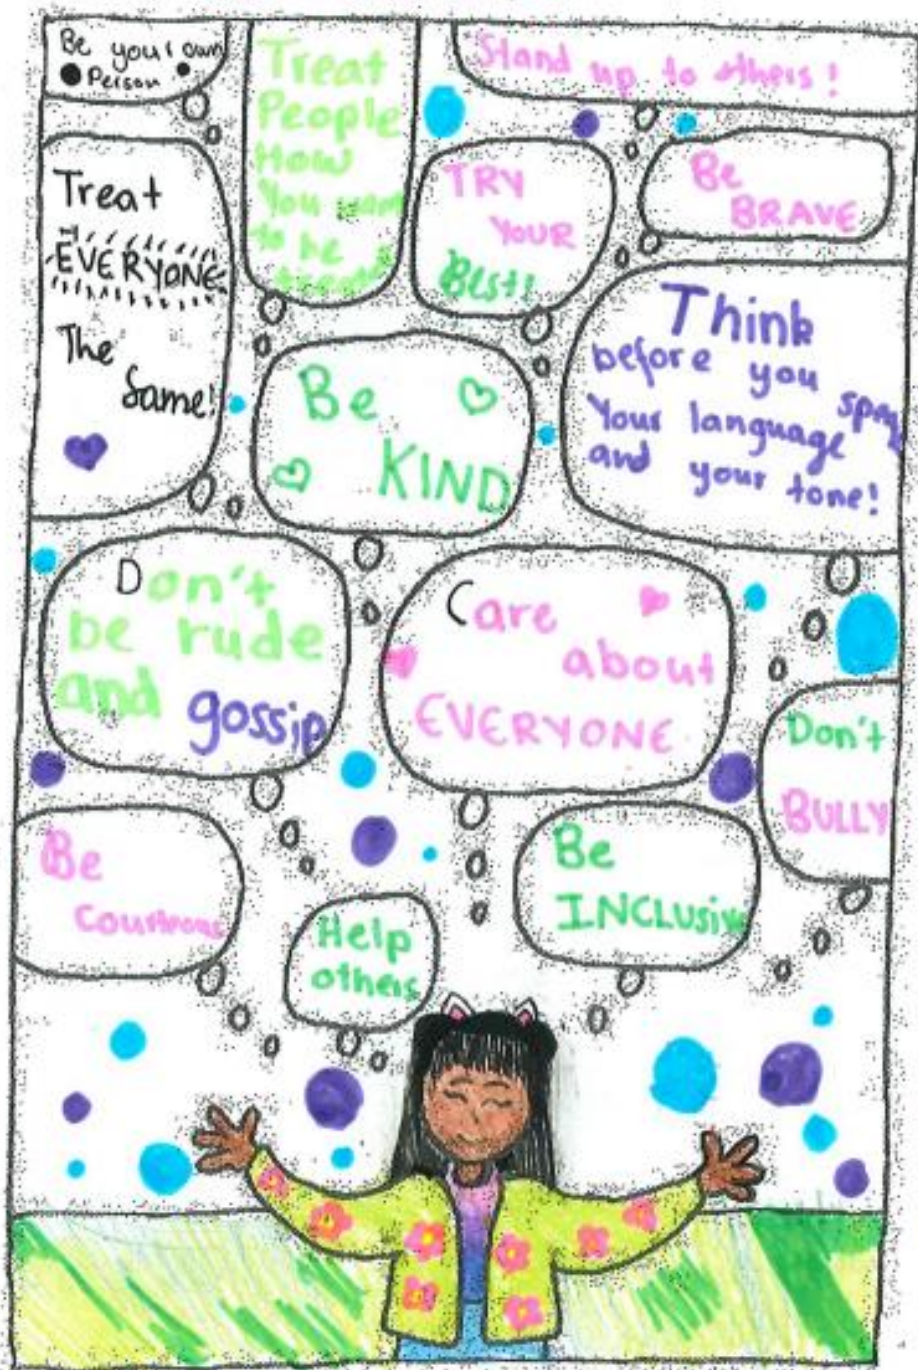 Be your own
Person
Treat
People
How
You want
to be
treated
Stand up to others!
Treat
EVERYONE
The
Same!
TRY
YOUR
BEST!
Be
BRAVE
Think
before you
speak
Your language
and your tone!
Be
KIND
Don't
be rude
and gossip
Care
about
EVERYONE
Don't
BULLY
Be
Be
INCLUSIVE
Help
others